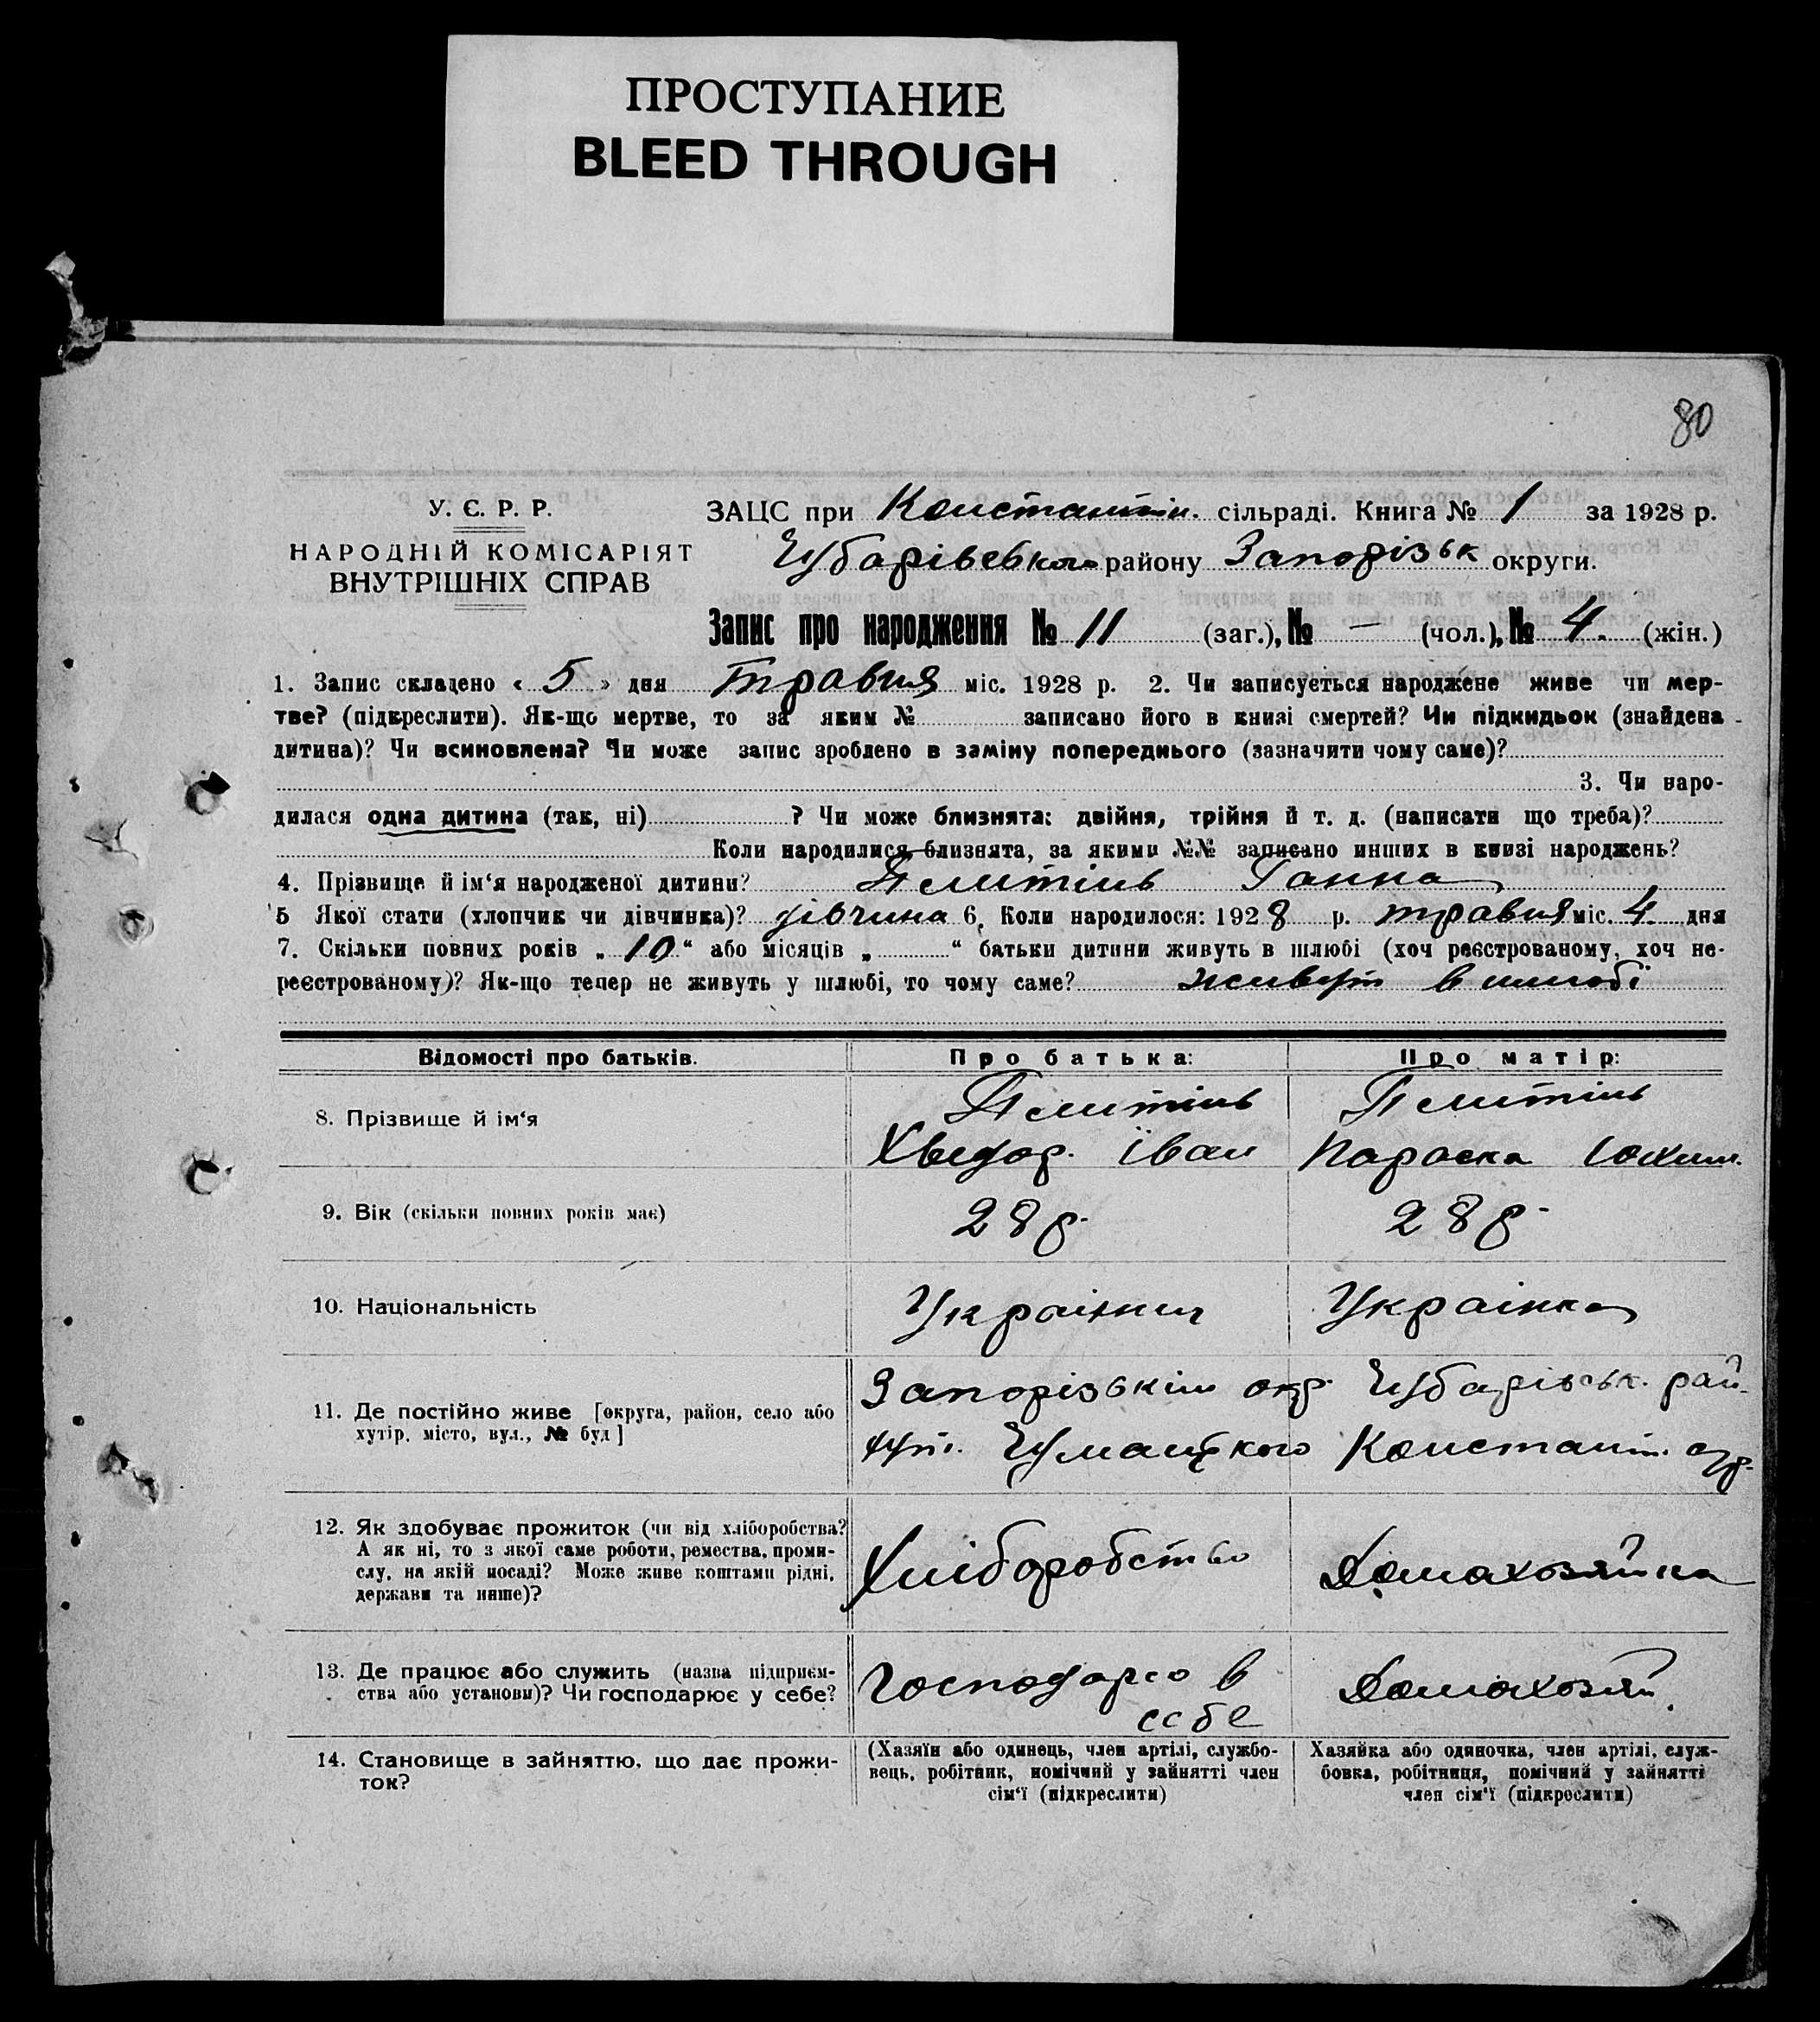 ПРОСТУПАНИЕ
BLEED THROUGH
80
У. Є. Р. Р.
НАРОДНІЙ КОМІСАРІЯТ
ВНУТРІШНІХ СПРАВ
ЗАЦС при Константін. сільраді. Книга № 1 за 1928 р.
Чубарівського району Запорізьк округи.
Запис про народження № 11 (заг.), № — (чол.), № 4. (жін.)
1. Запис складено « 5 » дня Травня міс. 1928 р. 2. Чи записується народжене живе чи мер-
тве? (підкреслити). Як-що мертве, то за яким № записано його в книзі смертей? Чи підкидьок (знайдена
дитина)? Чи всиновлена? Чи може запис зроблено в заміну попереднього (зазначити чому саме)?
3. Чи наро-
дилася одна дитина (так, ні) ? Чи може близнята: двійня, трійня й т. д. (написати що треба)?
Коли народилися близнята, за якими №№ записано инших в книзі народжень?
4. Прізвище й ім‘я народженої дитини? Ганна
5 Якої стати (хлопчик чи дівчинка)? дівчина 6. Коли народилося: 1928 р. травня міс. 4 дня
7. Скільки повних років „ 10 “ або місяців „ “ батьки дитини живуть в шлюбі (хоч реєстрованому, хоч не-
реєстрованому)? Як-що тепер не живуть у шлюбі, то чому саме? живуть в шлюбі
Відомості про батьків. Про батька: Про матір:
8. Прізвище й ім‘я
Хведор. Іван Параска Юхим.
9. Вік (скільки повних років має) 28 р. 28 р.
10. Національність Украінець Украінка
11. Де постійно живе [округа, район, село або
хутір, місто, вул., № буд]
Запорізькім окр. Чубарівськ. рай.
Константін.
12. Як здобуває прожиток (чи від хліборобства?
А як ні, то з якої саме роботи, ремества, проми-
слу, на якій посаді? Може живе коштами рідні,
держави та инше)?
Хліборобство Домахозяйка
13. Де працює або служить (назва підприєм-
ства або установи)? Чи господарює у себе?
Господарю в
себе
Домахозяй.
14. Становище в зайняттю, що дає прожи-
ток?
(Хазяїн або одинець, член артілі, службо-
вець, робітник, помічний у зайнятті член
сім‘ї (підкреслити)
Хазяйка або одиночка, член артілі, служ-
бовка, робітниця, помічний у зайнятті
член сім‘ї (підкреслити)